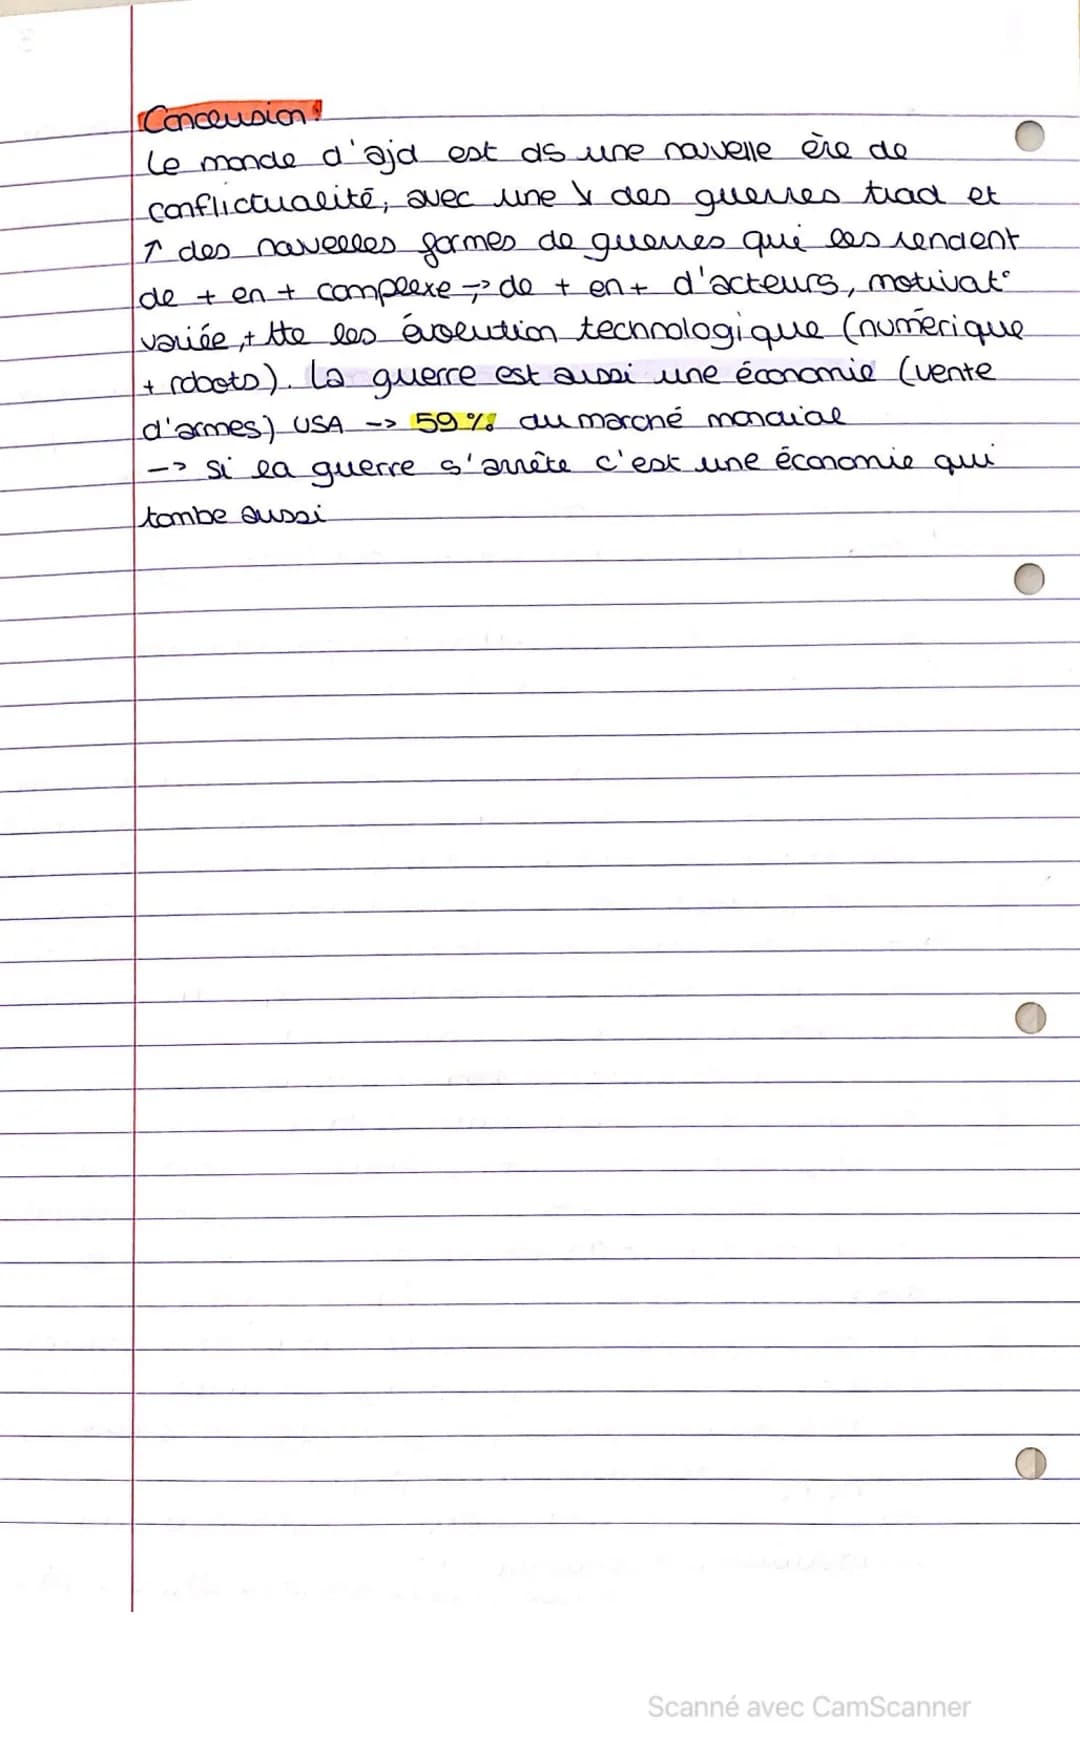 Conclusion:
Le monde d'ajd est ds une nouvelle ère de
conflictualité, avec une ↘ des guerres trad et
↗ des nouvelles formes de guerres qui les rendent
de + en + complexe -> de + en + d'acteurs, motivat°
variée, + tte les évolution technologique (numérique
+ robots). La guerre est aussi une économie (vente
d'armes) USA --> 59% du marché mondial
--> si la guerre s'arrête c'est une économie qui
tombe aussi
Scanné avec CamScanner